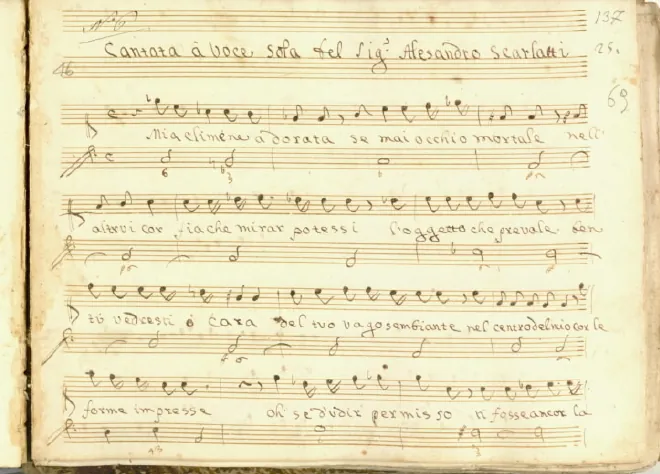 N.º 6
137
Cantata à Voce Sola del Sig.r Alesandro Scarlatti
25.
46
69
Mia climène adorata se mai occhio mortale nell'
altrui cor sia che mirar potessi l'oggetto che prevale ben
tù vedresti ò Cara del tuo vago sembiante nel centro del mio cor le
forme impresse oh' se d'udir permisso ti fosse ancor la